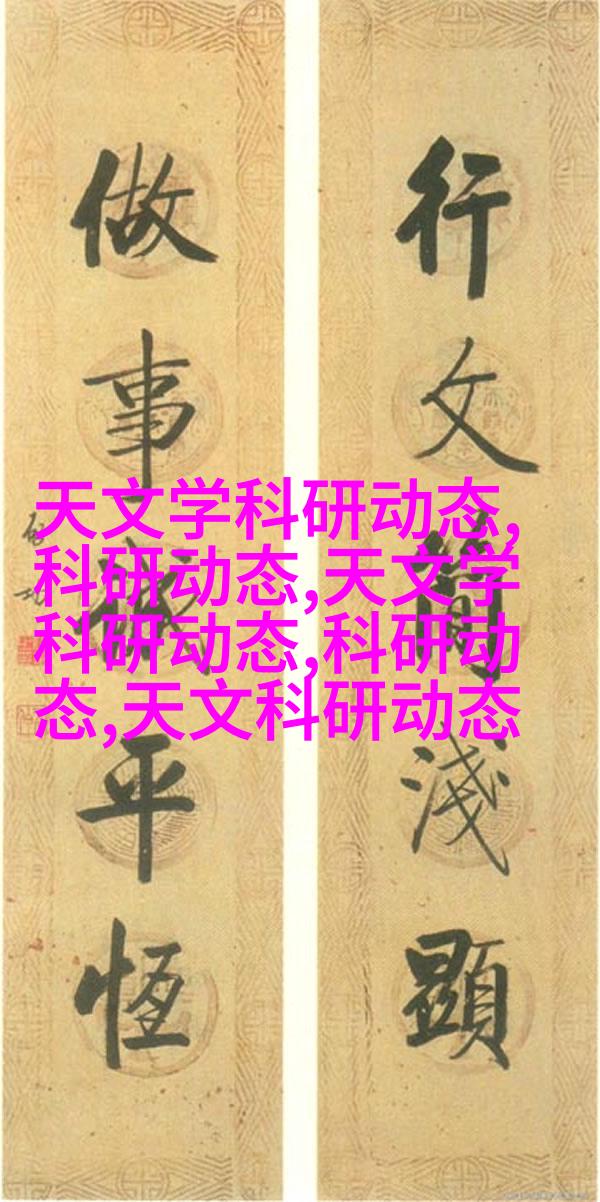 行文簡淺顯
做事平恆
天文学科研动态,
科研动态,天文学
科研动态,科研动
态,天文科研动态